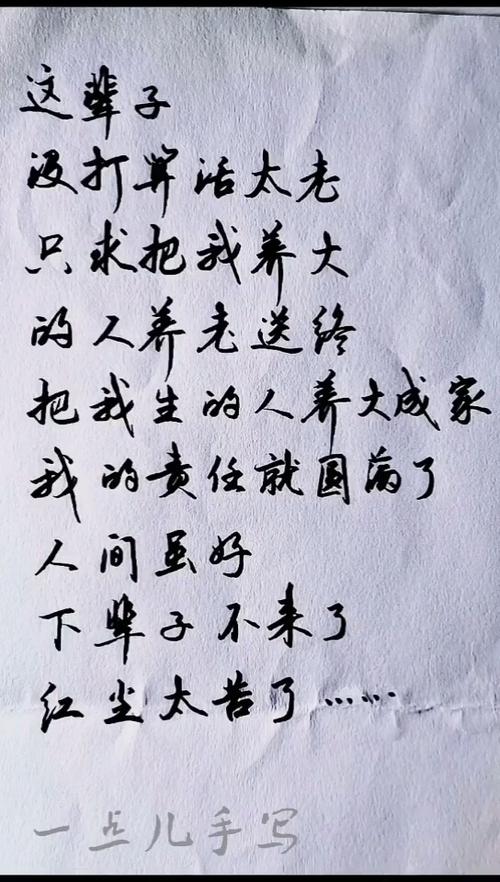 这辈子
没打算活太老
只求把我养大
的人养老送终
把我生的人养大成家
我的责任就圆满了
人间虽好
下辈子不来了
红尘太苦了……
一点儿手写